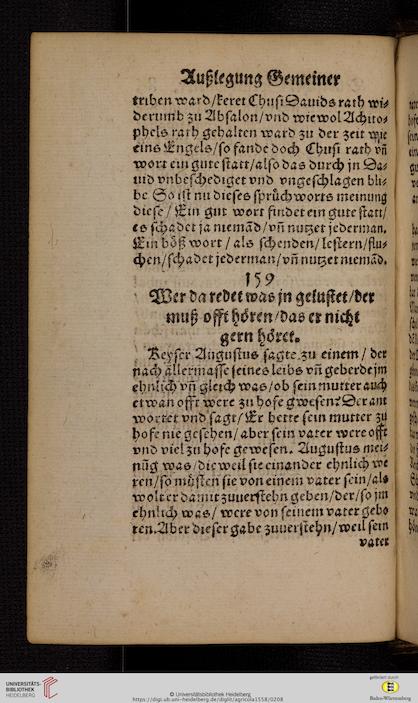 Außlegung Gemeiner
triben ward/keret Chusi Dauids rath wi⸗
derumb zu Absalon/vnd wiewol Achito⸗
phels rath gehalten ward zu der zeit wie
eins Engels/so fande doch Chusi rath vñ
wort ein gute statt/also das durch jn Da⸗
uid vnbeschediget vnd vngeschlagen bli⸗
be So ist nu dieses sprüchworts meinung
diese/Ein gut wort findet ein gute statt/
es schadet ja niemãd/vñ nutzet jederman.
Ein böß wort/als schenden/lestern/flu⸗
chen/schadet jederman/vñ nutzet niemãd.
159
Wer da redet was jn gelustet/der
muß offt hören/das er nicht
gern höret.
Keyser Augustus sagte zu einem/der
nach allermasse seines leibs vñ geberde jm
ehnlich vñ gleich was/ob sein mutter auch
etwan offt were zu hofe gwesen? Der ant
wortet vnd sagt/Er hette sein mutter zu
hofe nie gesehen/aber sein vater were offt
vnd viel zu hofe gewesen. Augustus mei⸗
nũg was/die weil sie einander ehnlich we
ren/so müsten sie von einem vater sein/als
wolt er damit zuuerstehn geben/der/so jm
ehnlich was/were von seinem vater gebo
ren. Aber dieser gabe zuuerstehn/weil sein
vater
UNIVERSITÄTS-
BIBLIOTHEK
HEIDELBERG
© Universitätsbibliothek Heidelberg
https://digi.ub.uni-heidelberg.de/diglit/agricola1558/0208
gefördert durch
Baden-Württemberg